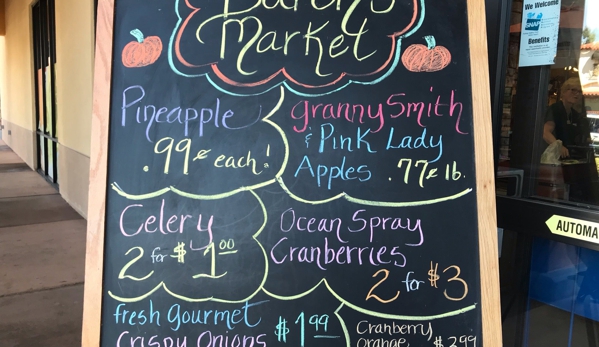 Market
Pineapple
.99¢ each!
granny Smith
& Pink Lady
Apples .77¢ lb.
Celery
2 for $1.00
Ocean Spray
Cranberries
2 for $3
fresh gourmet
Crispy Onions $1.99
Cranberry
Orange $3.99
We Welcome
SNAP
Benefits
AUTOMA